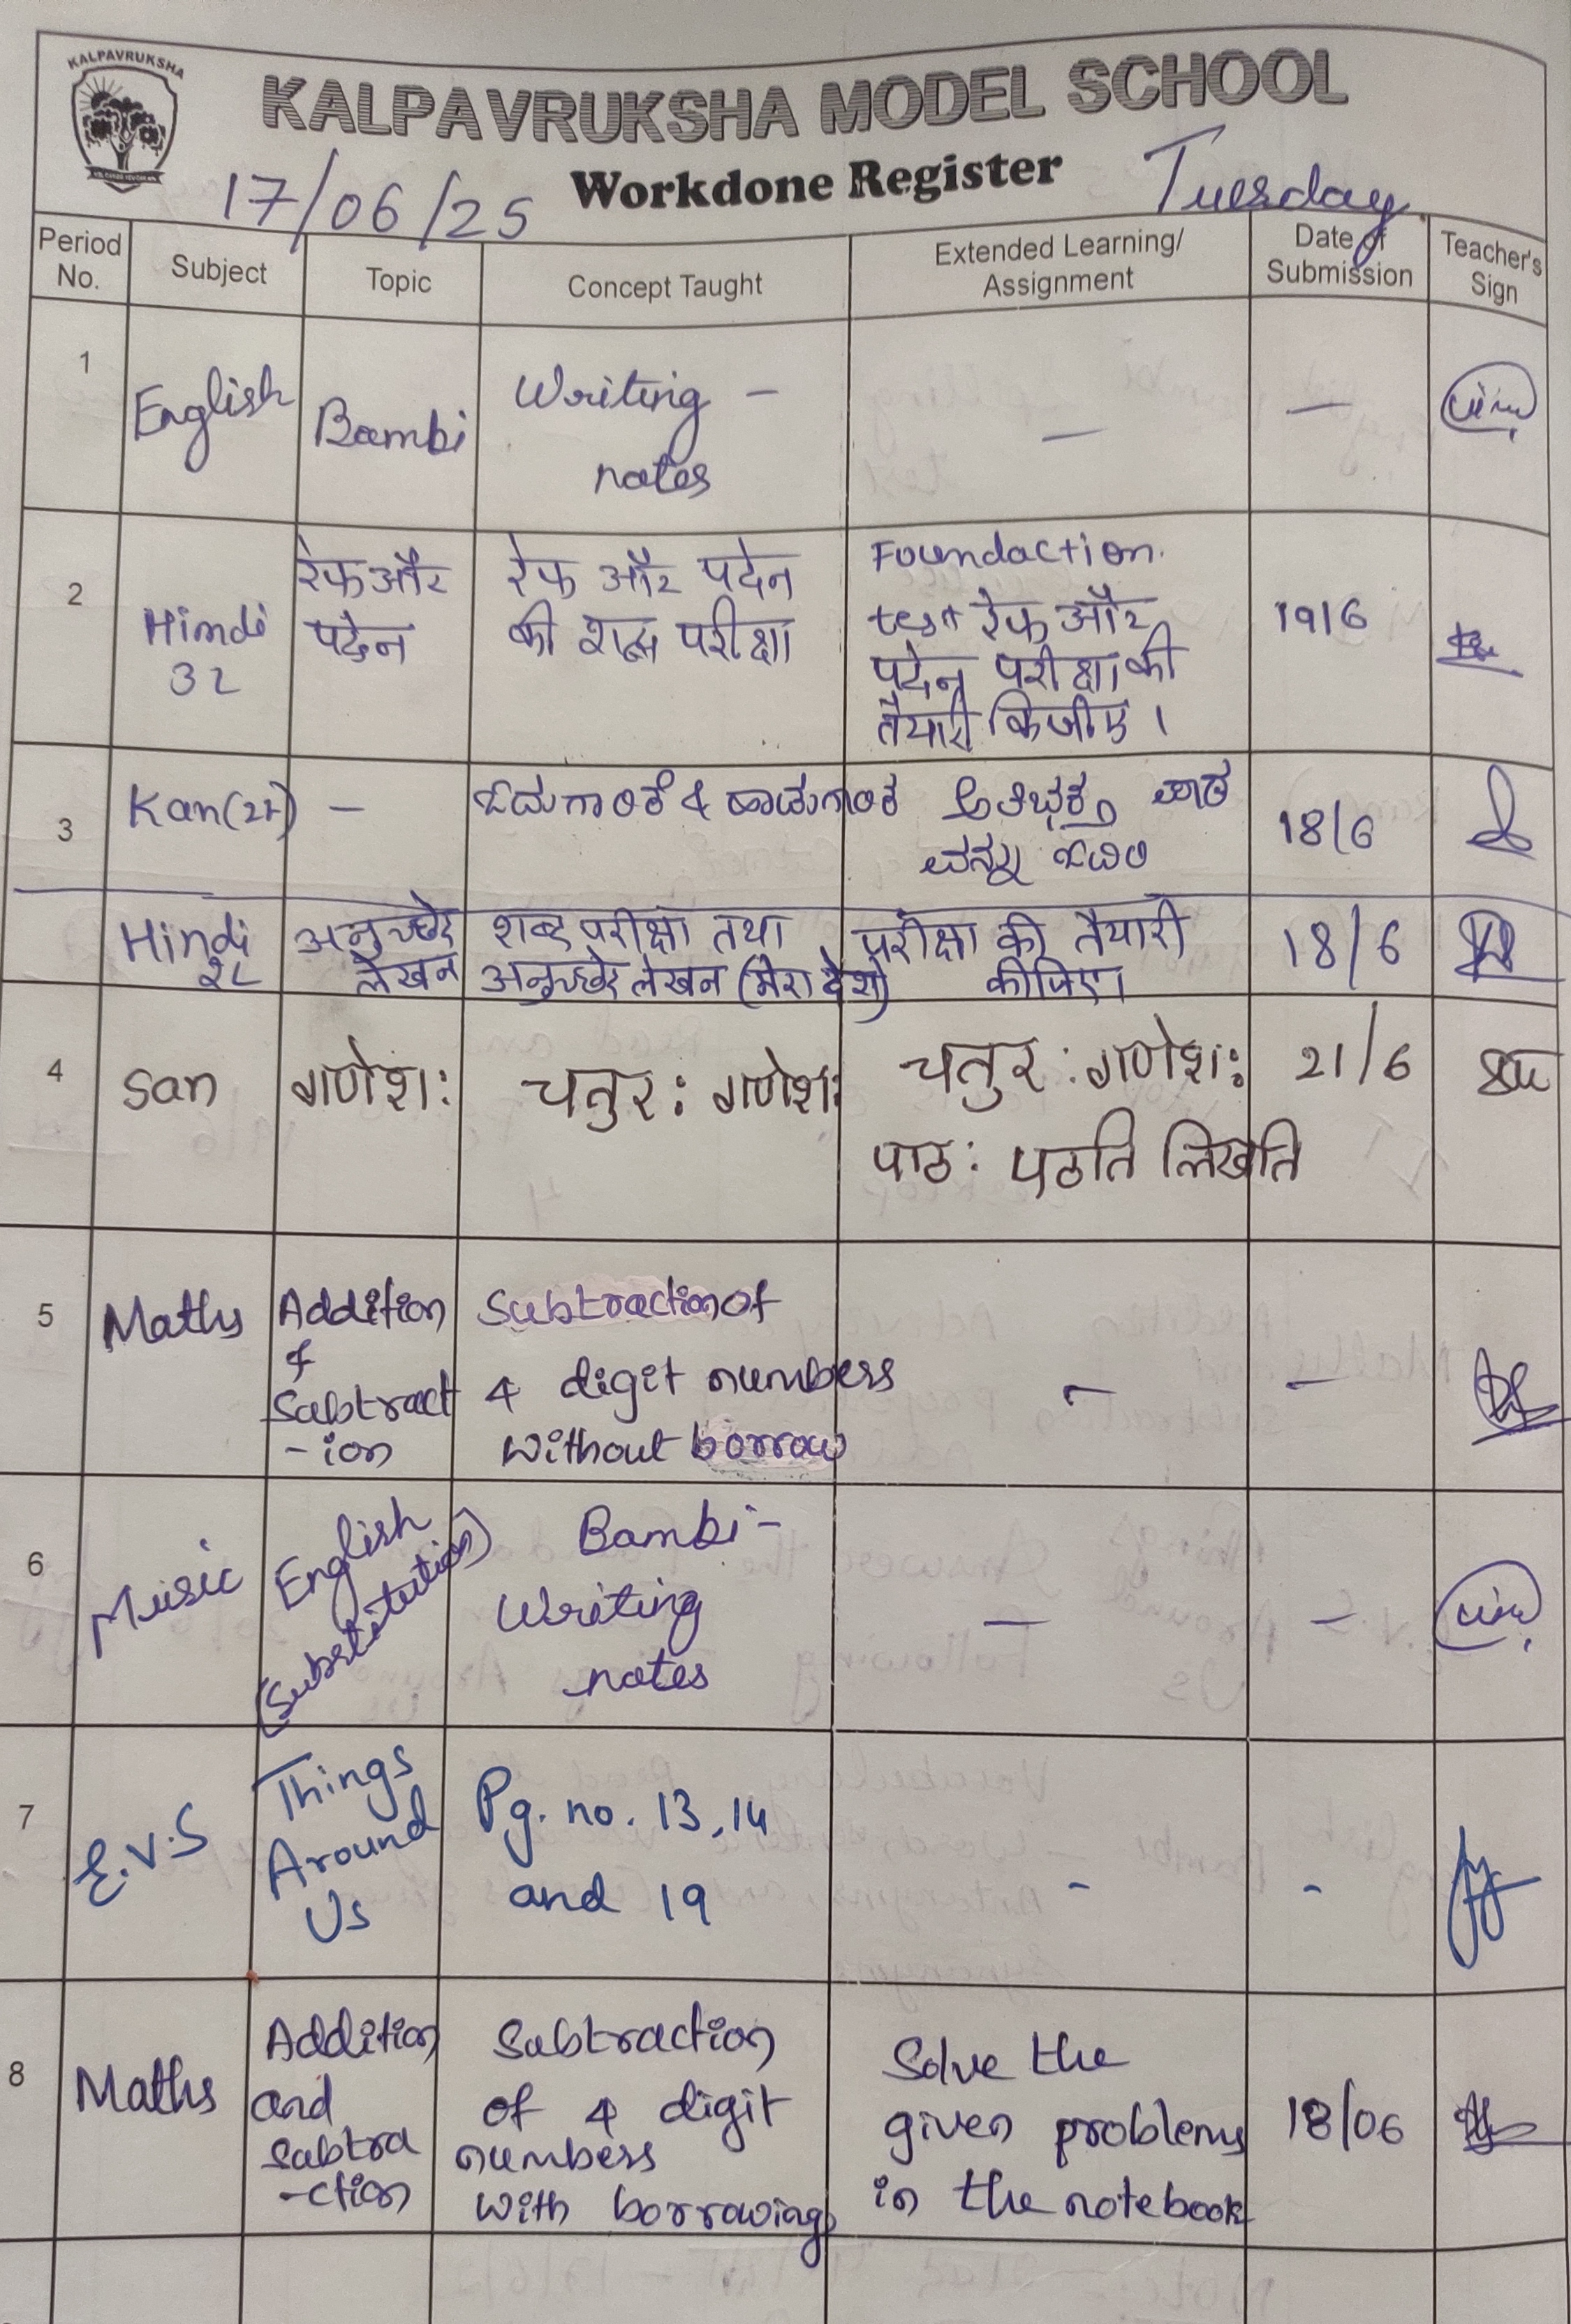 KALPAVRUKSHA
KALPAVRUKSHA MODEL SCHOOL
17/06/25 Workdone Register Tuesday
Period No. Subject Topic Concept Taught Extended Learning/ Assignment Date of Submission Teacher's Sign
1 English Bambi Writing -
notes
— —
2 Hindi
3L
रेफ और
पदेन
रेफ और पदेन
की शब्द परीक्षा
Foundaction.
test रेफ और
पदेन परीक्षा की
तैयारी किजीए ।
19/6
3 Kan(2L) — ಓದುಗಾರಿಕೆ &
ಓದಿರಿ
18/6
Hindi
2L
अनुच्छेद
लेखन
शब्द परीक्षा तथा
अनुच्छेद लेखन (मेरा देश)
परीक्षा की तैयारी
कीजिए।
18/6
4 San गणेश: चतुर: गणेश:
चतुर: गणेश:
पाठ: पठति लिखति
21/6
5 Maths Addition
&
Subtract
-ion
Subtraction of
4 digit numbers
without borrow
— —
6 Music English
(Substitution)
Bambi -
Writing
notes
— —
7 E.V.S Things
Around
Us
Pg. no. 13, 14
and 19
- -
8 Maths Addition
and
Subtra
-ction
Subtraction
of 4 digit
numbers
with borrowing
Solve the
given problems
in the notebook
18/06